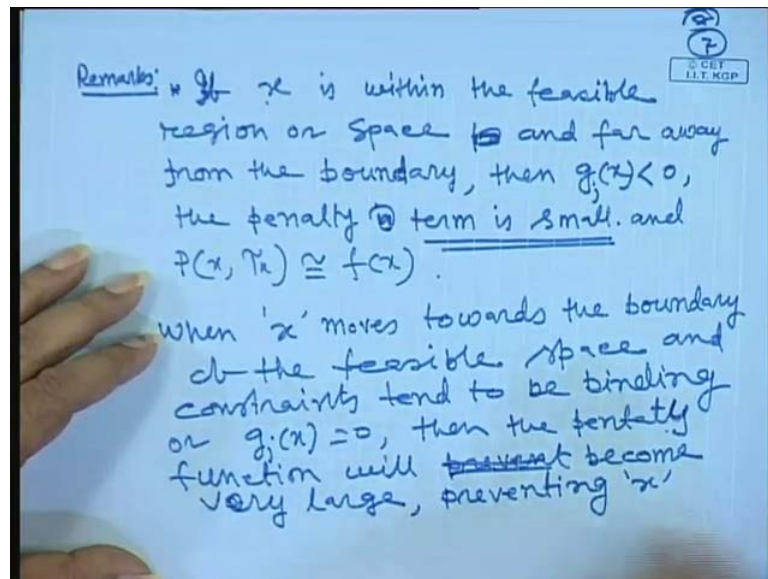 7
© CET
I.I.T. KGP
Remarks: * If x is within the feasible
region or space and far away
from the boundary, then gj(x) < 0,
the penalty term is small. and
P(x, rk) ≅ f(x).
when 'x' moves towards the boundary
of the feasible space and
constraints tend to be binding
or gj(x) = 0, then the pentatly
function will prevent become
very large, preventing 'x'